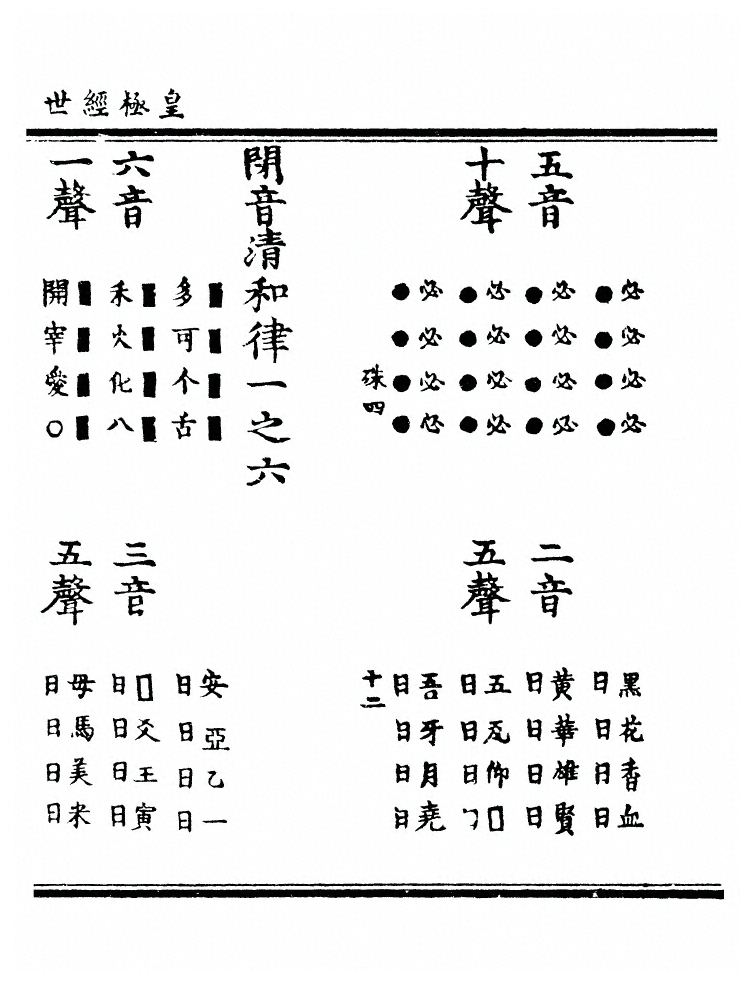 皇極經世
五音
十聲
必必必必
●●●●
必必必必
●●●●
必必必必
●●●●
必必必必
●●●●
四
二音
五聲
黑花香血
日日日日
黃華雄賢
日日日日
五瓦仰□
日日日
吾牙月堯
日日日日
十二
閉音清和律一之六
六音
一聲
■■■■
多可个舌
■■■■
禾火化八
■■■■
開宰愛○
三音
五聲
安亞乙一
日日日日
□爻王寅
日日日日
母馬美米
日日日日